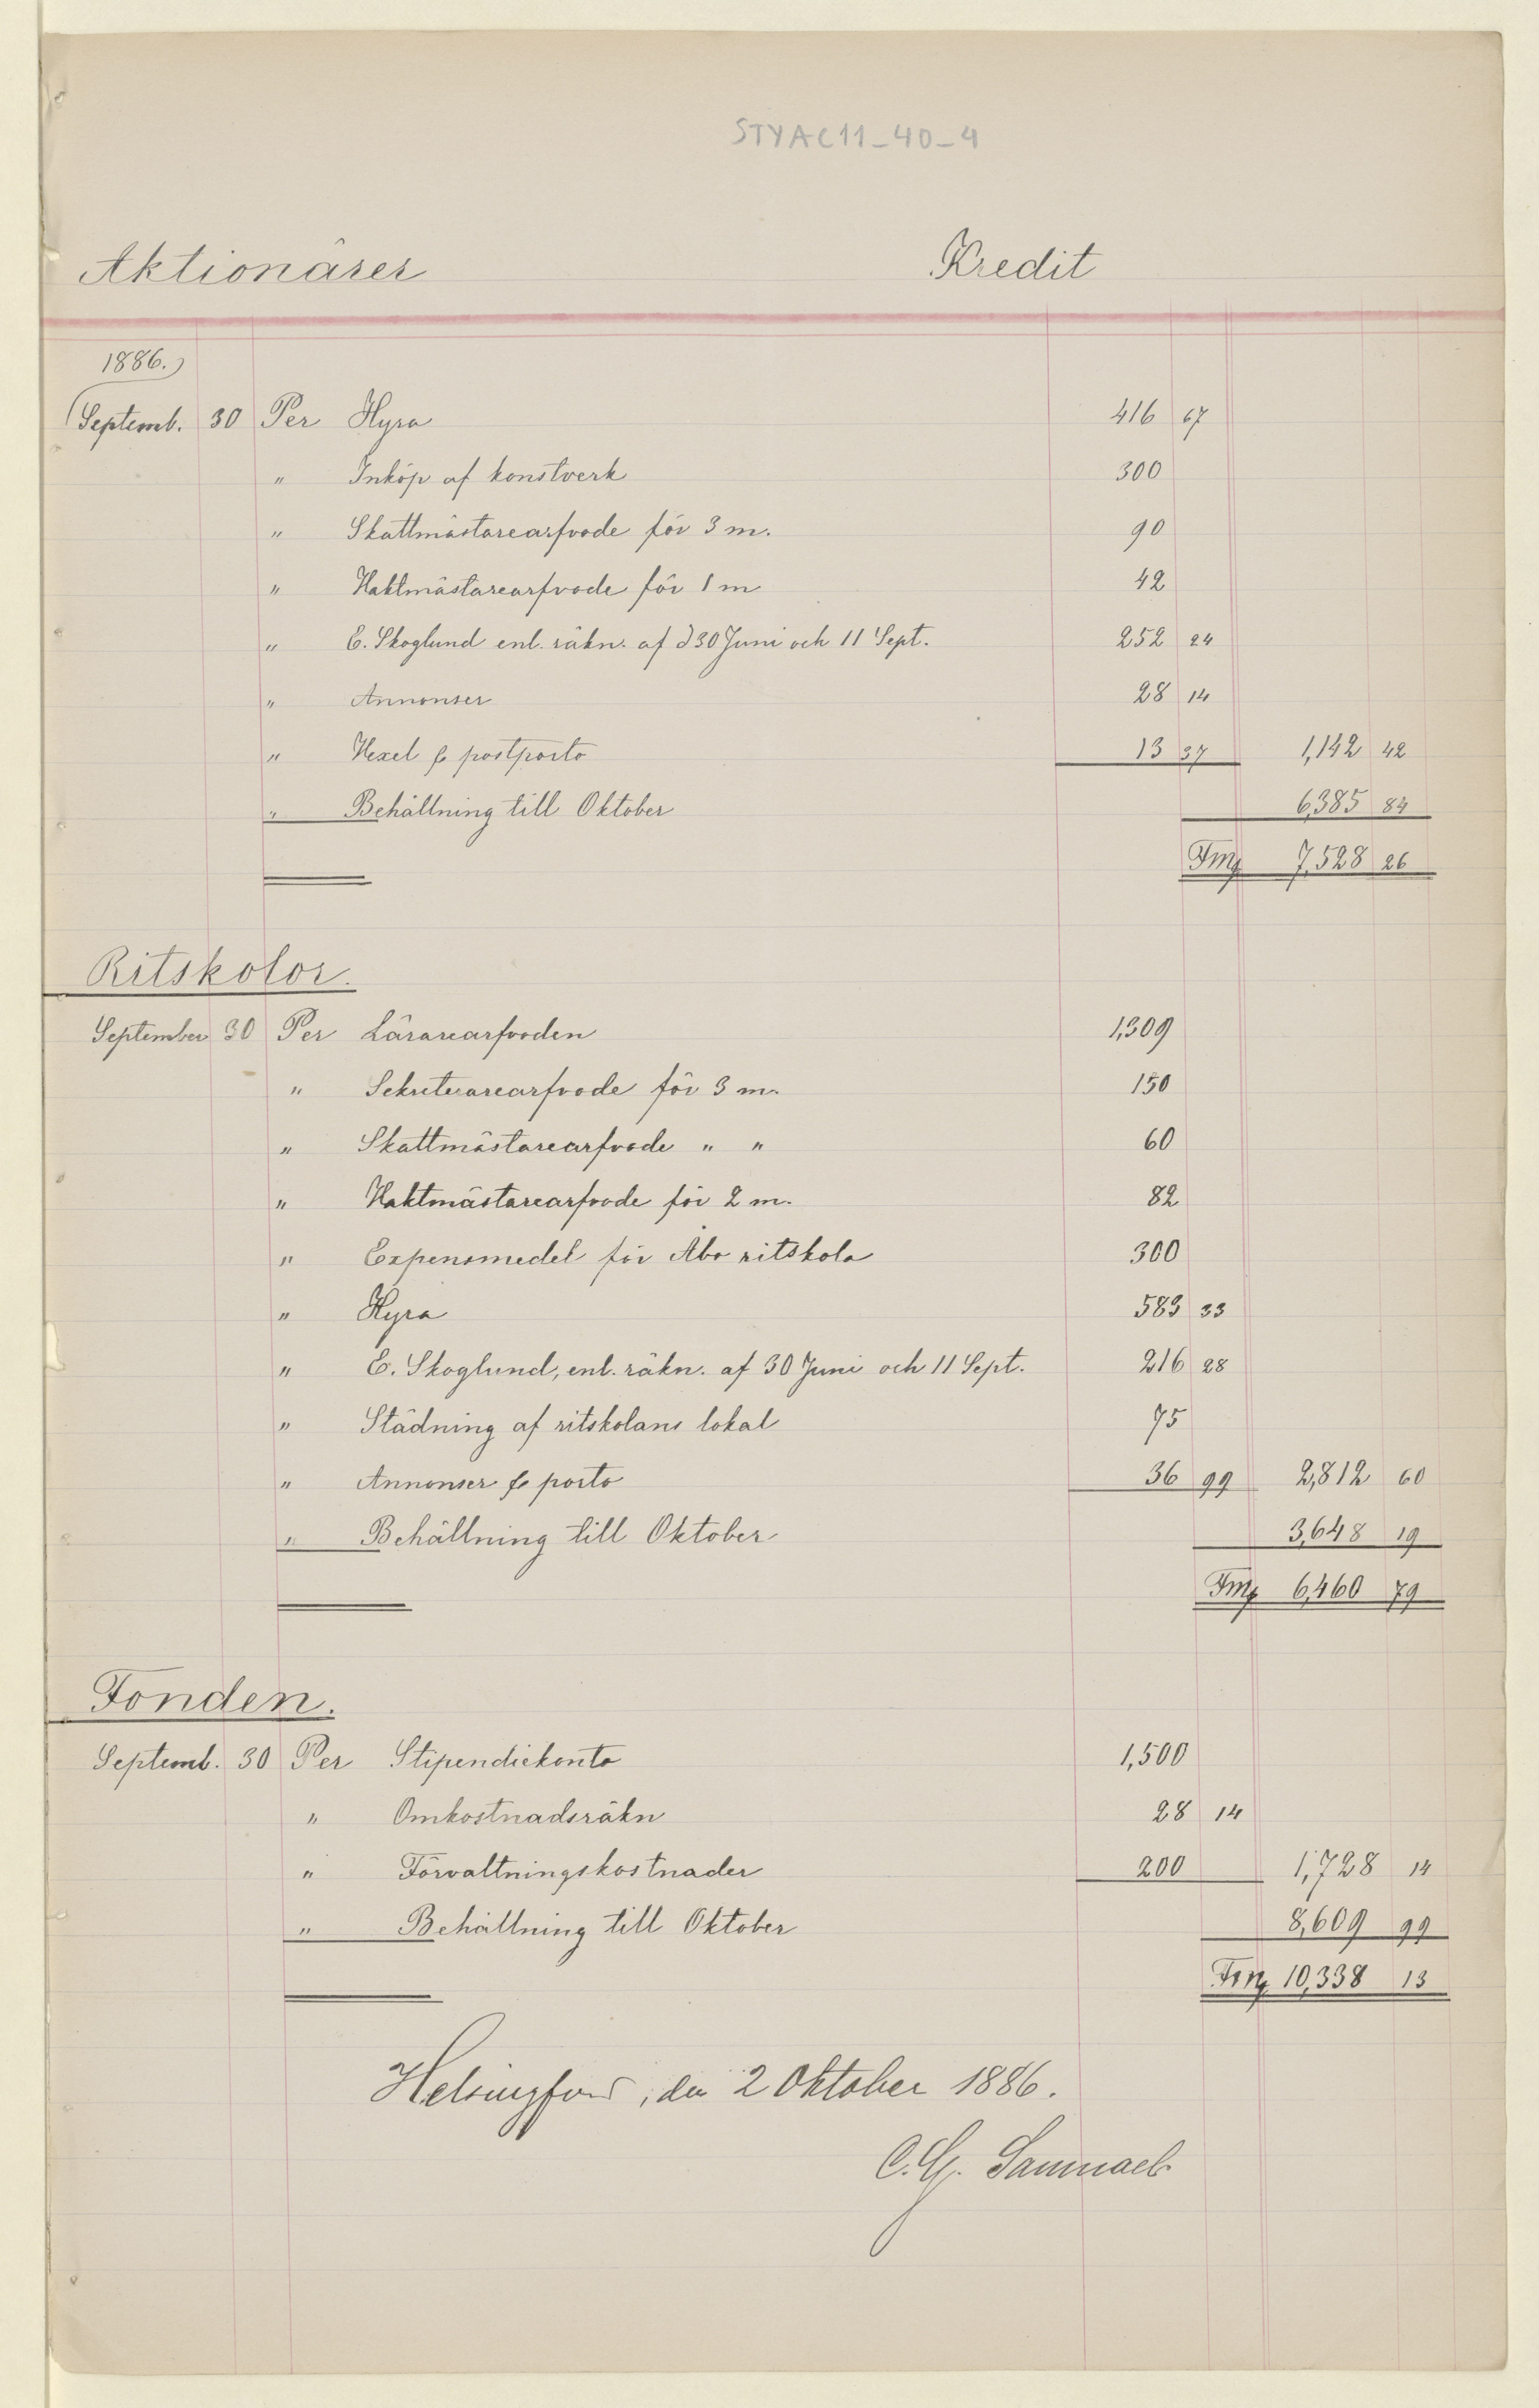 STYAC11_40_4
Aktionärer Kredit
1886.
Septemb. 30 Per Hyra 416 67
" Inköp af konstverk 300
" Skattmästarearfvode för 3 m. 90
" Vaktmästarearfvode för 1 m 42
" E. Skoglund enl. räkn. af d 30 Juni och 11 Sept. 252 24
" Annonser 28 14
" Vexel & postporto 13 37 1,142 42
" Behållning till Oktober 6,385 84
Fmk 7,528 26
Ritskolor.
September 30 Per Lärarearfvoden 1,309
" Sekreterarearfvode för 3 m. 150
" Skattmästarearfvode " " 60
" Vaktmästarearfvode för 2 m. 82
" Expensmedel för Åbo ritskola 300
" Hyra 583 33
" E. Skoglund, enl. räkn. af 30 Juni och 11 Sept. 216 28
" Städning af ritskolans lokal 75
" Annonser & porto 36 99 2,812 60
" Behållning till Oktober 3,648 19
Fmk 6,460 79
Fonden.
Septemb. 30 Per Stipendiekonto 1,500
" Omkostnadsräkn 28 14
" Förvaltningskostnader 200 1,728 14
" Behållning till Oktober 8,609 99
Fmk 10,338 13
Helsingfors, den 2 Oktober 1886.
C. G. Sanmark